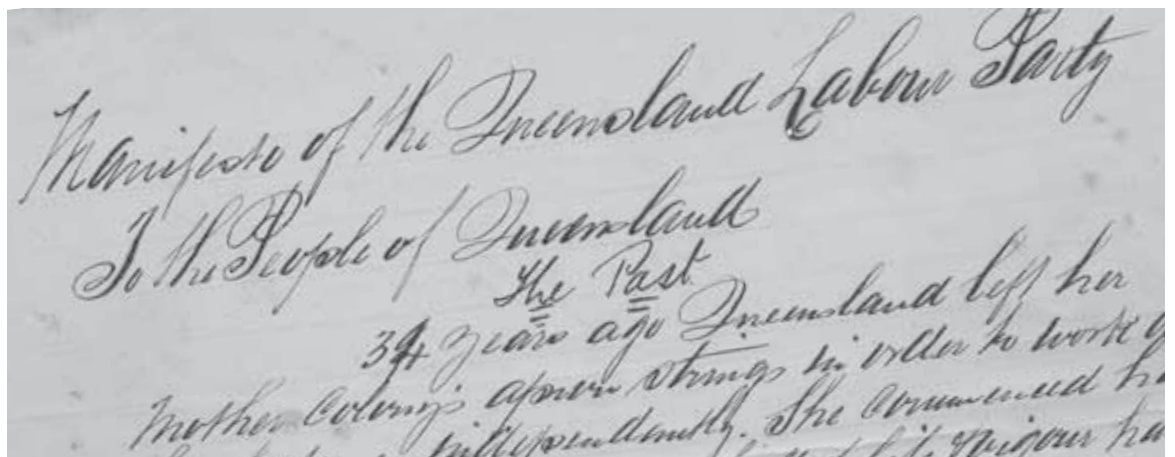 Manifesto of the Queensland Labour Party
To the People of Queensland
The Past
34 years ago Queensland left her
Mother Colony's apron strings in order to work
independently. She commenced
vigour